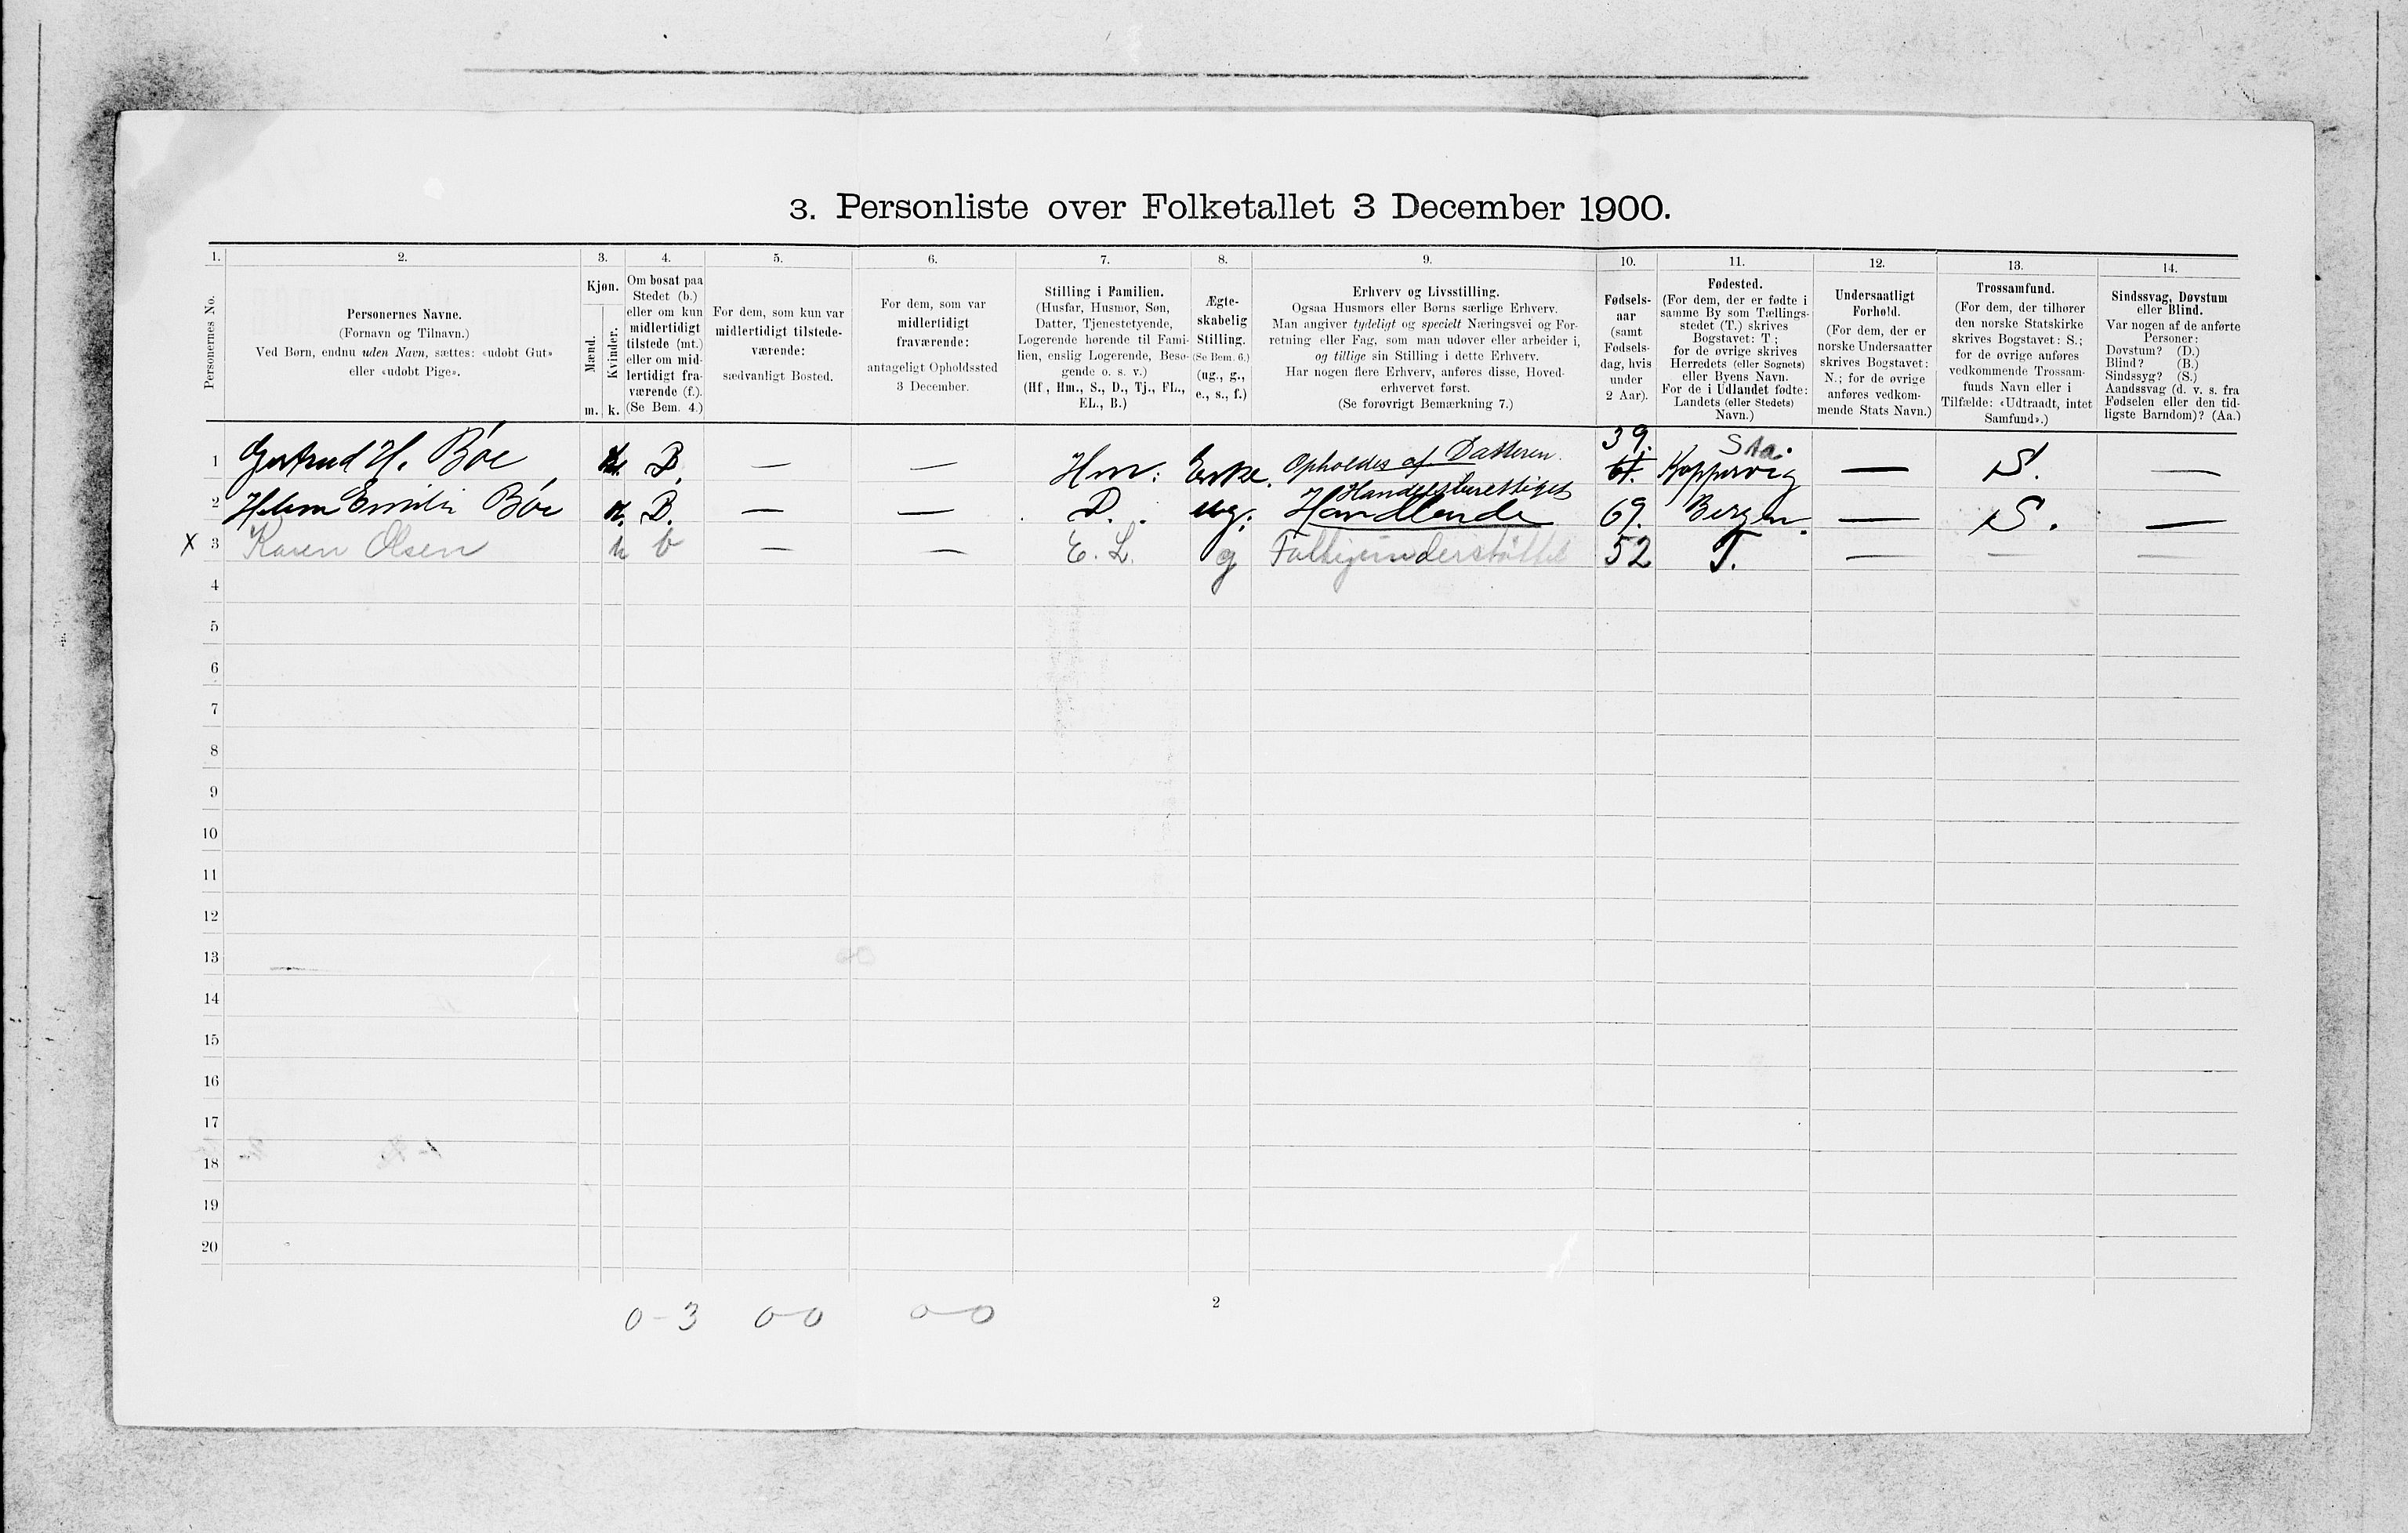 3. Personliste over Folketallet 3 December 1900.
1. 2. 3. 4. 5. 6. 7. 8. 9. 10. 11. 12. 13. 14.
Personernes No.
Personernes Navne.
(Fornavn og Tilnavn.)
Ved Børn, endnu uden Navn, sættes: «udøbt Gut»
eller «udøbt Pige».
Kjøn.
Mænd.
Kvinder.
m. k.
Om bosat paa
Stedet (b.)
eller om kun
midlertidigt
tilstede (mt.)
eller om mid-
lertidigt fra-
værende (f.).
(Se Bem. 4.)
For dem, som kun var
midlertidigt tilstede-
værende:
sædvanligt Bosted.
For dem, som var
midlertidigt
fraværende:
antageligt Opholdssted
3 December.
Stilling i Familien.
(Husfar, Husmor, Søn,
Datter, Tjenestetyende,
Logerende hørende til Fami-
lien, enslig Logerende, Besø-
gende o. s. v.)
(Hf, Hm., S., D., Tj., FL.,
EL., B.)
Ægte-
skabelig
Stilling.
(Se Bem. 6.)
(ug., g.,
e., s., f.)
Erhverv og Livsstilling.
Ogsaa Husmors eller Børns særlige Erhverv.
Man angiver tydeligt og specielt Næringsvei og For-
retning eller Fag, som man udøver eller arbeider i,
og tillige sin Stilling i dette Erhverv.
Har nogen flere Erhverv, anføres disse, Hoved-
erhvervet først.
(Se forøvrigt Bemærkning 7.)
Fødsels-
aar
(samt
Fødsels-
dag, hvis
under
2 Aar).
Fødested.
(For dem, der er fødte i
samme By som Tællings-
stedet (T.) skrives
Bogstavet: T;
for de øvrige skrives
Herredets (eller Sognets)
eller Byens Navn.
For de i Udlandet fødte:
Landets (eller Stedets)
Navn.)
Undersaatligt
Forhold.
(For dem, der er
norske Undersaatter
skrives Bogstavet:
N.; for de øvrige
anføres vedkom-
mende Stats Navn.)
Trossamfund.
(For dem, der tilhører
den norske Statskirke
skrives Bogstavet: S.;
for de øvrige anføres
vedkommende Trossam-
funds Navn eller i
Tilfælde: «Udtraadt, intet
Samfund».)
Sindssvag, Døvstum
eller Blind.
Var nogen af de anførte
Personer:
Døvstum? (D.)
Blind? (B.)
Sindssyg? (S.)
Aandssvag (d. v. s. fra
Fødselen eller den tid-
ligste Barndom)? (Aa.)
39.
1 Gertrud H. Bøe k. B. — — Hm: Enke. Opholdes af Datteren. Koppervig — S. —
Handelsberettiget
2 Helene Emilie Bøe k. B. — — D. ug. Handlende 69. Bergen. — S. —
X 3 Karen Olsen k b — — E. L. g Fattigunderstøttet 52 T. — — —
4
5
6
7
8
9
10
11
12
13
14
15
16
17
18
19
20
0-3 0-0 0-0
2